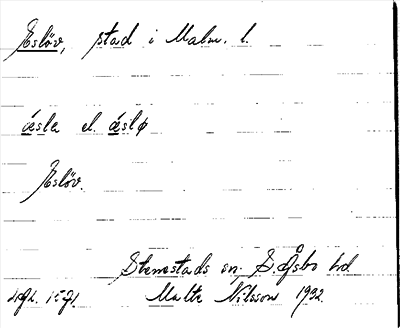 Eslöv, stad i Malm. l.
ǽslɐ el. ǽslø
Eslöv.
Stenestads sn. S. Åsbo hd
Malte Nilsson 1932